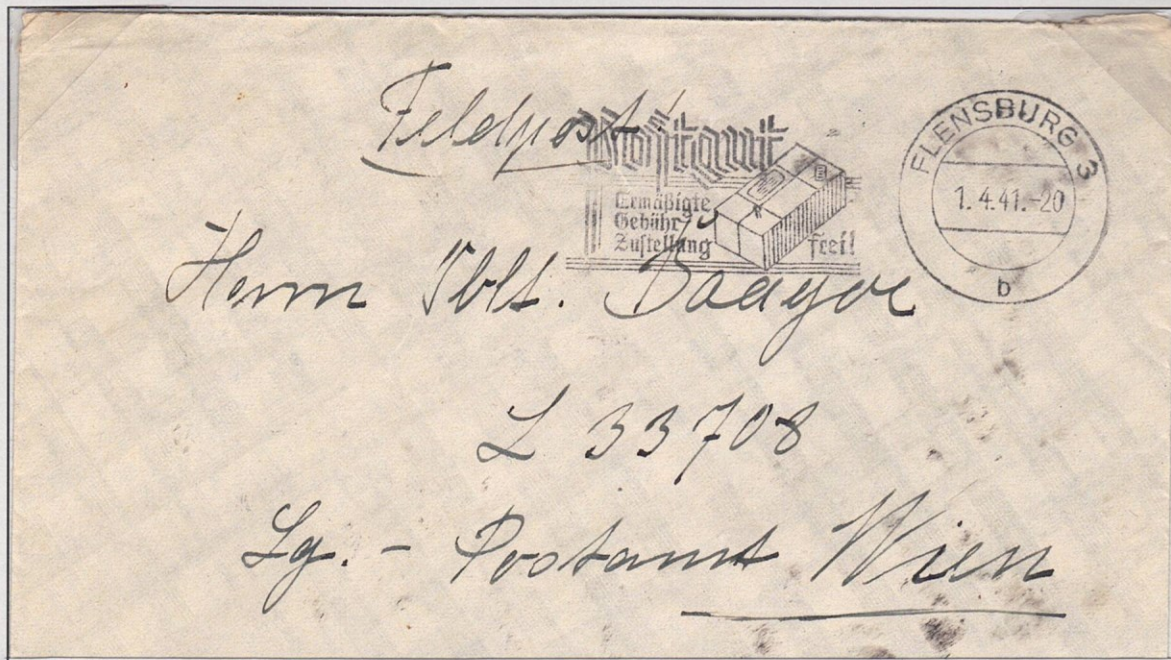 Feldpost!
Postgut
Ermäßigte
Gebühr
Zustellung frei!
FLENSBURG 3
1.4.41.-20
b
Herrn Oblt. Baagoe
L 33708
Lg.- Postamt Wien